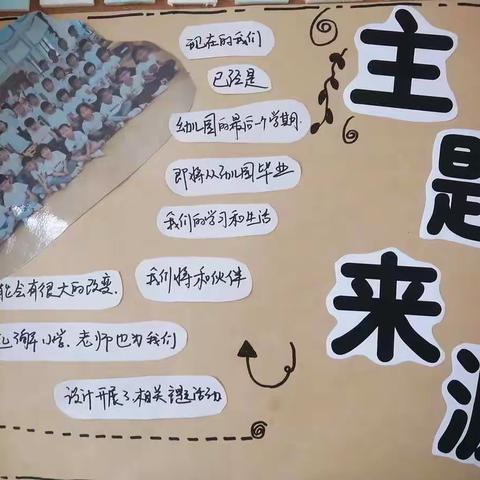 主是来源
现在的我们
已经是
幼儿园的最后一个学期.
即将从幼儿园毕业
我们的学习和生活
会有很大的改变.
我们将和伙伴
了解小学、老师也为我们
设计开展了相关主题活动